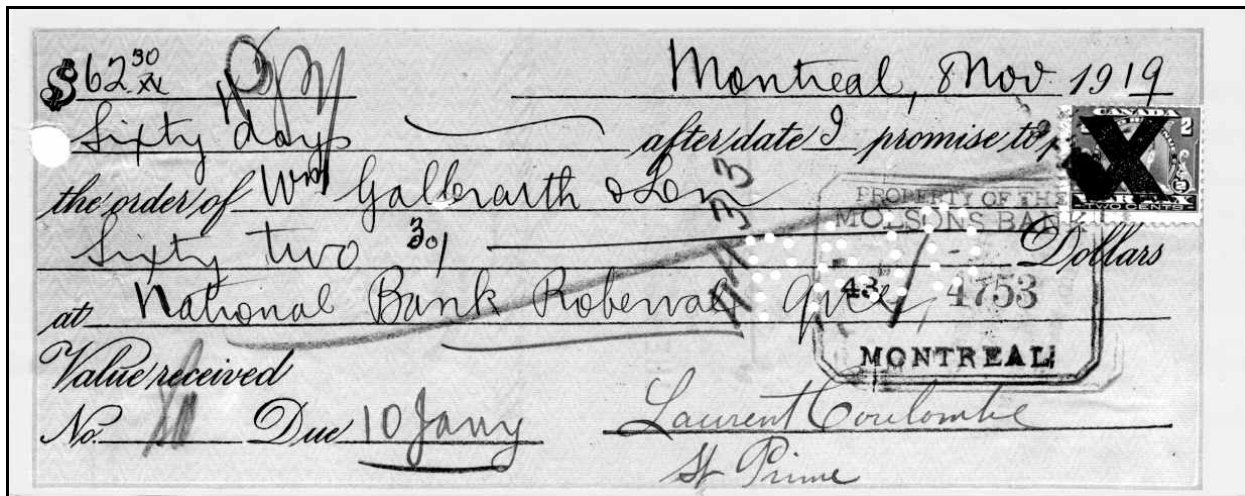 $62 30/xx Montreal, 8 Nov 1919
Sixty days after date I promise to
the order of Wm Galbraith & Son
Sixty two 30/ Dollars
at National Bank Roberval Que
Value received
No. Due 10 Jany
Laurent Coulombe
St Prime
CANADA
2 2
WAR TAX
TWO CENTS
PROPERTY OF THE
MOLSONS BANK
43 4753
MONTREAL